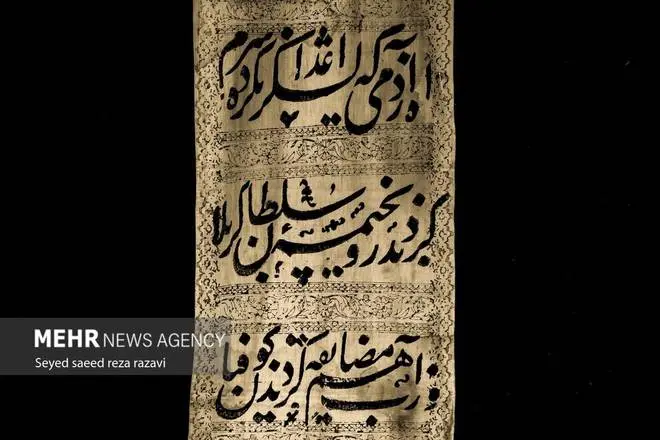 آه از دمی که لشکر اعدا نکرده شرم
کردند رو بخیمهٔ سلطان کربلا
از آب هم مضایقه کردند کوفیان
MEHR NEWS AGENCY
Seyed saeed reza razavi